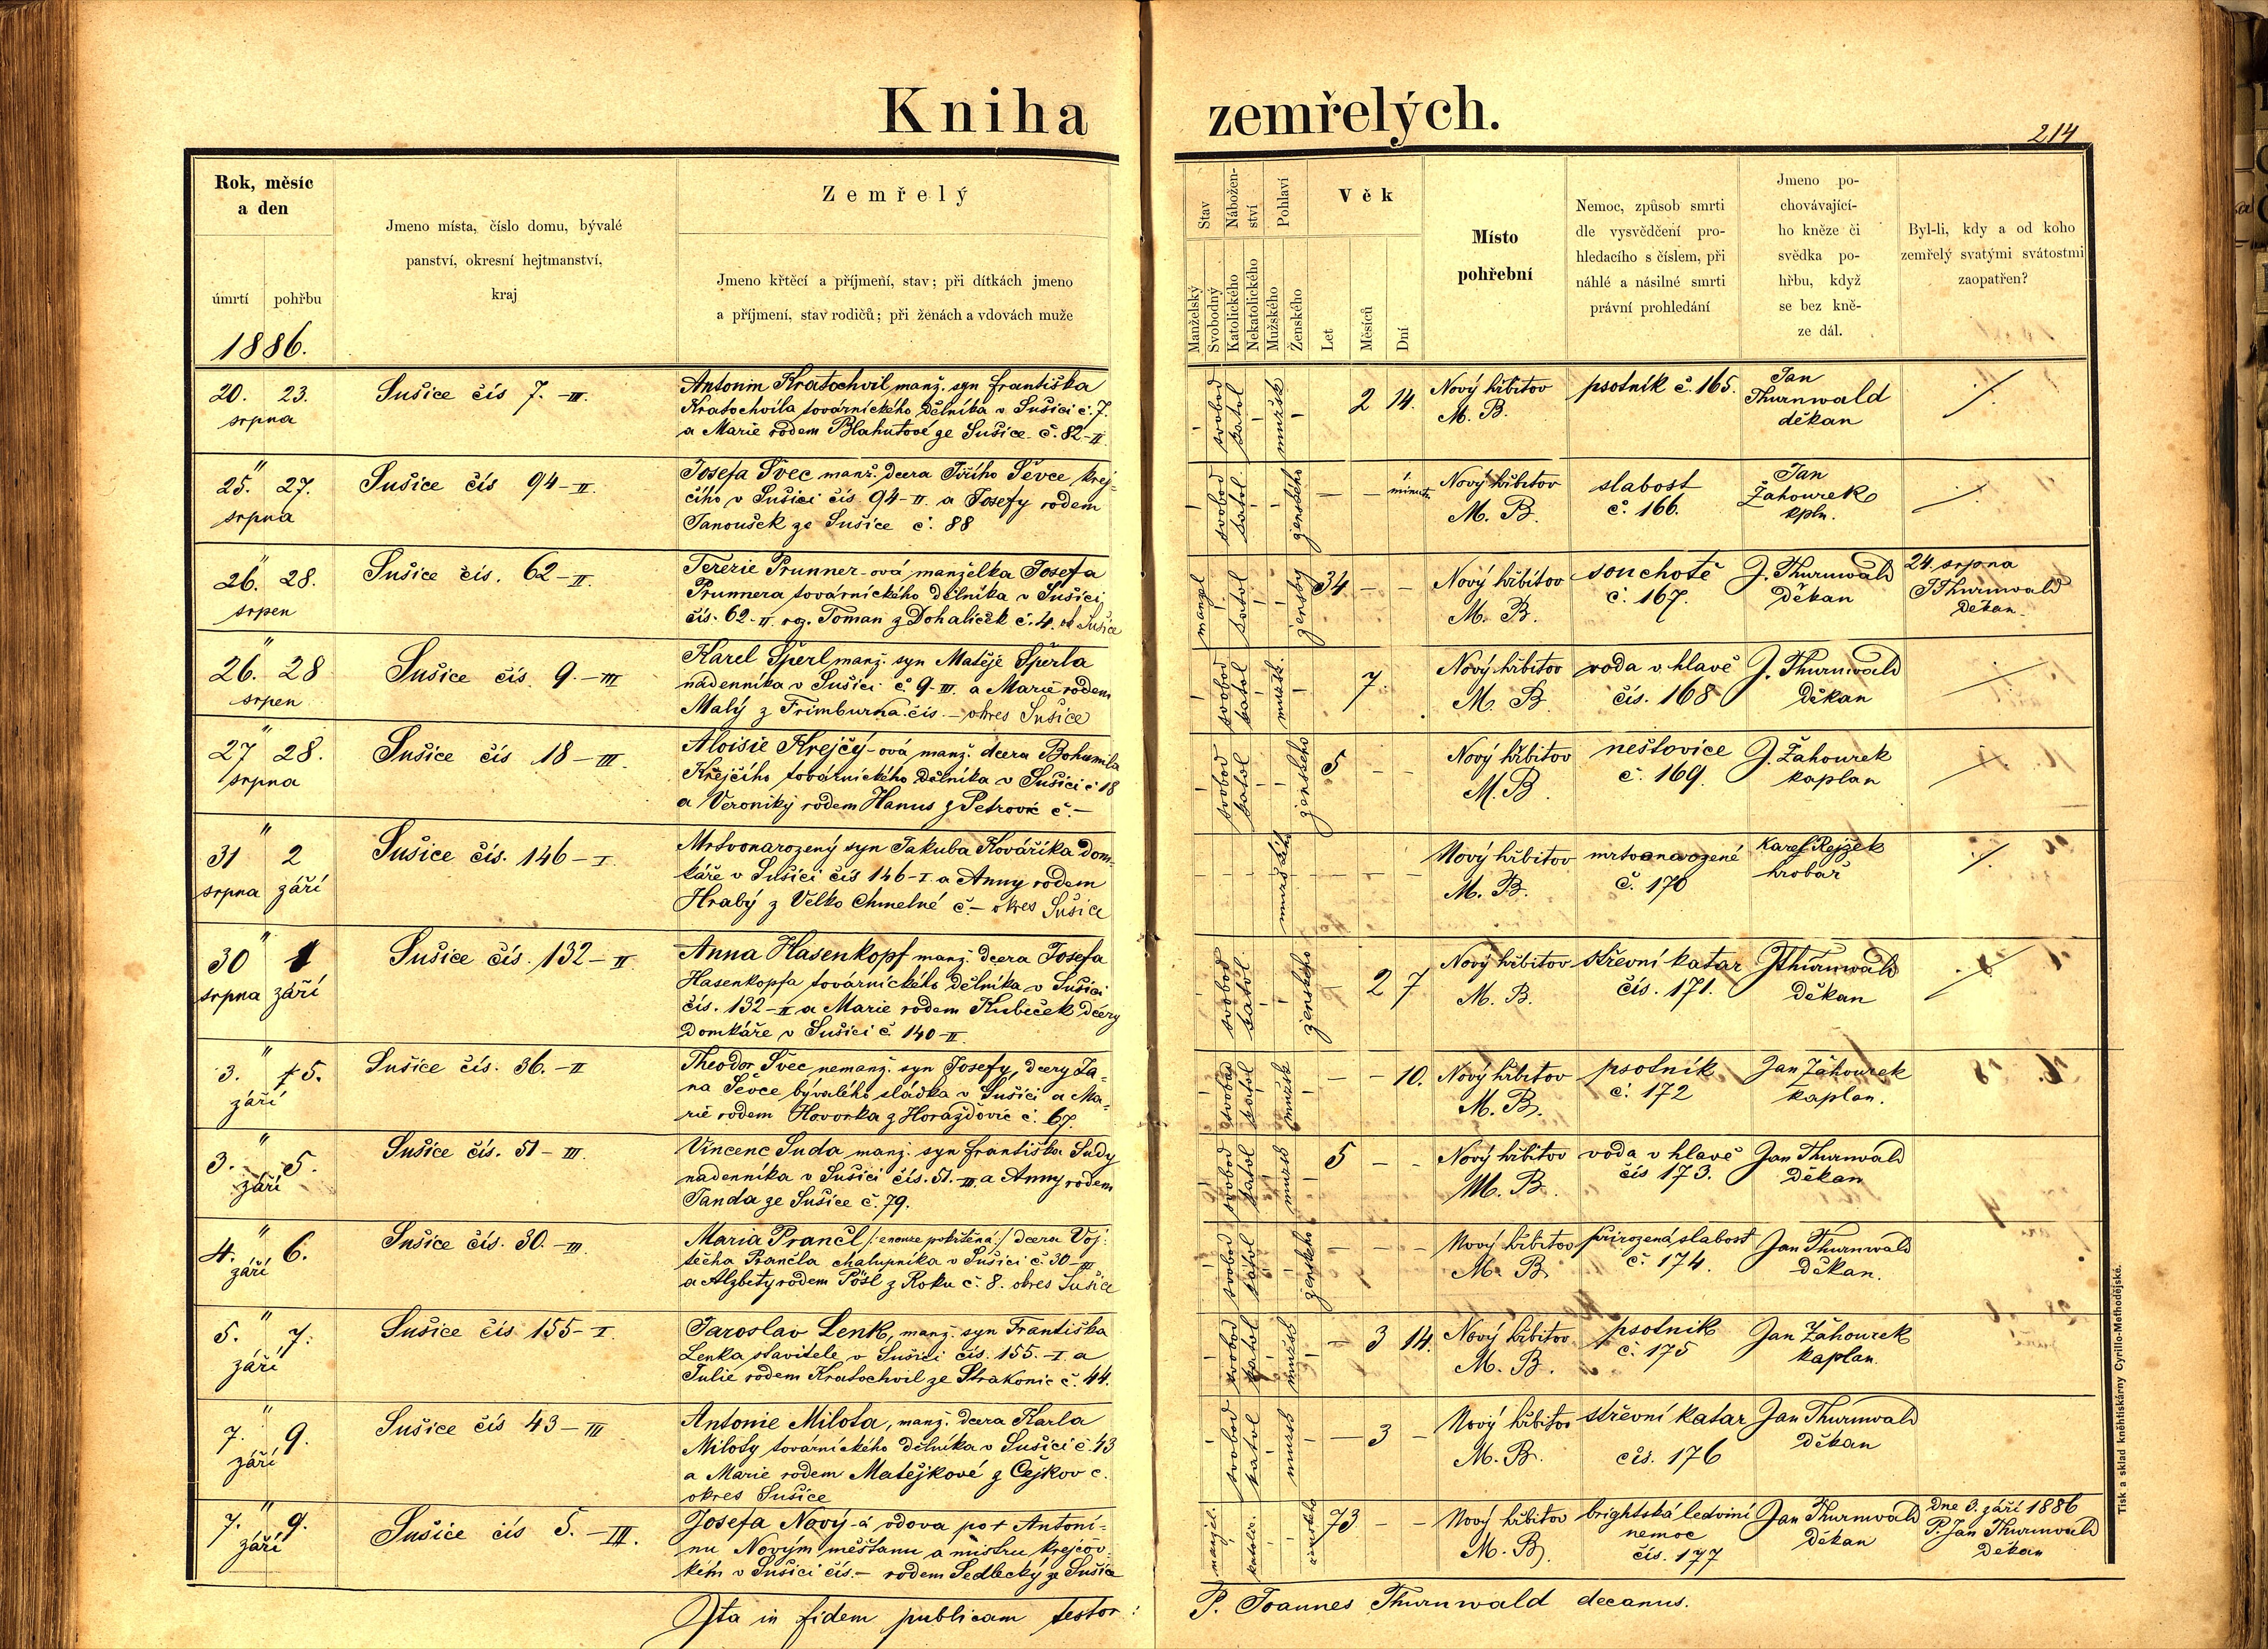 Kniha zemřelých.
214
Rok, měsíc a den
úmrtí pohřbu
1886.
Jmeno místa, číslo domu, bývalé
panství, okresní hejtmanství,
kraj
Zemřelý
Jmeno křtěcí a příjmení, stav; při dítkách jmeno
a příjmení, stav rodičů; při ženách a vdovách muže
Stav
Manželský
Svobodný
Nábožen-
ství
Katolického
Nekatolického
Pohlaví
Mužského
Ženského
Věk
Let
Měsíců
Dní
Místo
pohřební
Nemoc, způsob smrti
dle vysvědčení pro-
hledacího s číslem, při
náhlé a násilné smrti
právní prohledání
Jmeno po-
chovávající-
ho kněze či
svědka po-
hřbu, když
se bez kně-
ze dál.
Byl-li, kdy a od koho
zemřelý svatými svátostmi
zaopatřen?
20. 23.
srpna
Sušice čís 7. -III.
Antonin Kratochvil manž. syn františka
Kratochvíla továrnického dělníka v Sušici č. 7.
a Marie rodem Blahutové ze Sušice č. 82-II
svobod katol mužsk 2 14.
Nový hřbitov
M. B.
psotník č. 165.
Jan
Thurnwald
děkan
" 25. 27.
srpna
Sušice čís 94-II.
Josefa Švec manž. dcera Jiřího Ševce krej-
čího v Sušici čís 94-II. a Josefy rodem
Janoušek ze Sušice č. 88
svobod katol. ženského — — minut
Nový hřbitov
M. B.
slabost
č. 166.
Jan
Žahourek
kpln.
" 26. 28.
srpen
Sušice čís. 62-II.
Terezie Prunner-ová manželka Josefa
Prunnera továrnického dělníka v Sušici
čís. 62-II. roz. Toman z Dohaliček č. 4. ok Sušice
manžel katol ženský 34 — —
Nový hřbitov
M. B.
souchotě
č. 167.
J. Thurnwald
Děkan
24. srpna
JThurnwald
Děkan.
" 26. 28
srpen
Sušice čís. 9.-III
Karel Šperl manž. syn Matěje Šperla
nádenníka v Sušici č. 9-III. a Marie rodem
Malý z Frimburka čís. — okres Sušice
svobod katol mužsk. 7.
Nový hřbitov
M. B.
voda v hlavě
čís. 168
J. Thurnwald
Děkan
" 27 28.
srpna
Sušice čís 18-III.
Aloisie Krejčý-ová manž. dcera Bohumila
Krejčího továrnického dělníka v Sušici č 18
a Veroniky rodem Hanus z Petrovic č. —
svobod katol ženského 5 — —
Nový hřbitov
M. B.
neštovice
č. 169.
J. Žahourek
kaplan
" 31 2
srpna září
Sušice čís. 146-I.
Mrtvonarozený syn Jakuba Kováříka dom-
káře v Sušici čís 146-I. a Anny rodem
Hrabý z Velko Chmelné č. — okres Sušice
mužského
Nový hřbitov
M. B.
mrtvonarozené
č. 170
Karel Rejžek
hrobař
" 30 1
srpna září
Sušice čís. 132-II.
Anna Hasenkopf manž. dcera Josefa
Hasenkopfa továrnického dělníka v Sušici
čís. 132-II a Marie rodem Kubeček dcery
Domkáře v Sušici č. 140-II.
svobod katol ženského — 2 7
Nový hřbitov
M. B.
střevní katar
čís. 171.
JThurnwald
Děkan
" 3. 5.
září
Sušice čís. 36.-II
Theodor Švec nemanž. syn Josefy, dcery Ja-
na Ševce bývalého sládka v Sušici a Ma-
rie rodem Hovorka z Horažďovic č. 67.
svobod katol mužsk — — 10.
Nový hřbitov
M. B.
psotník
č. 172
Jan Žáhourek
kaplan.
" 3. 5.
září
Sušice čís. 51-III.
Vincenc Suda manž. syn františka Sudy
nádenníka v Sušici čís. 51.-III. a Anny rodem
Janda ze Sušice č. 79.
svobod katol mužsk 5 — —
Nový hřbitov
M. B.
voda v hlavě
čís 173.
Jan Thurnwald
Děkan
" 4. 6.
září
Sušice čís. 30.-III.
Maria Prančl /: enouze pokřtěná :/ dcera Voj-
těcha Prančla chalupníka v Sušici č. 30-III
a Alzbety rodem Pösl z Roku č. 8. okres Sušice
svobod katol ženského — — —
Nový hřbitov
M. B.
přirozená slabost
č. 174.
Jan Thurnwald
Děkan.
" 5. 7.
září
Sušice čís 155-I.
Jaroslav Lenk, manž. syn Františka
Lenka stavitele v Sušici čís. 155.-I. a
Julie rodem Kratochvil ze Strakonic č. 44.
svobod katol mužsk — 3 14.
Nový hřbitov
M. B.
psotník
č. 175
Jan Žáhourek
kaplan.
" 7. 9.
září
Sušice čís 43-III
Antonie Milota, manž. dcera Karla
Miloty továrnického dělníka v Sušici č. 43
a Marie rodem Matějkové z Čejkov c.
okres Sušice
svobod katol mužsk — 3 —
Nový hřbitov
M. B.
střevní katar
čís. 176
Jan Thurnwald
Děkan
" 7. 9.
září
Sušice čís 5.-III.
Josefa Nový-á vdova po † Antoní-
nu Novým měšťanu a mistru krejčov-
kém v Sušici čís. — rodem Sedlecký ze Sušice
manžel. katolic. ženského 73 — —
Nový hřbitov
M. B.
brightská ledviní
nemoc
čís. 177
Jan Thurnwald
Děkan
Dne 3. září 1886
P. Jan Thurnwald
Děkan
Ita in fidem publicam testor: P. Joannes Thurnwald decanus.
Tisk a sklad kněhtiskárny Cyrillo-Methodějské.